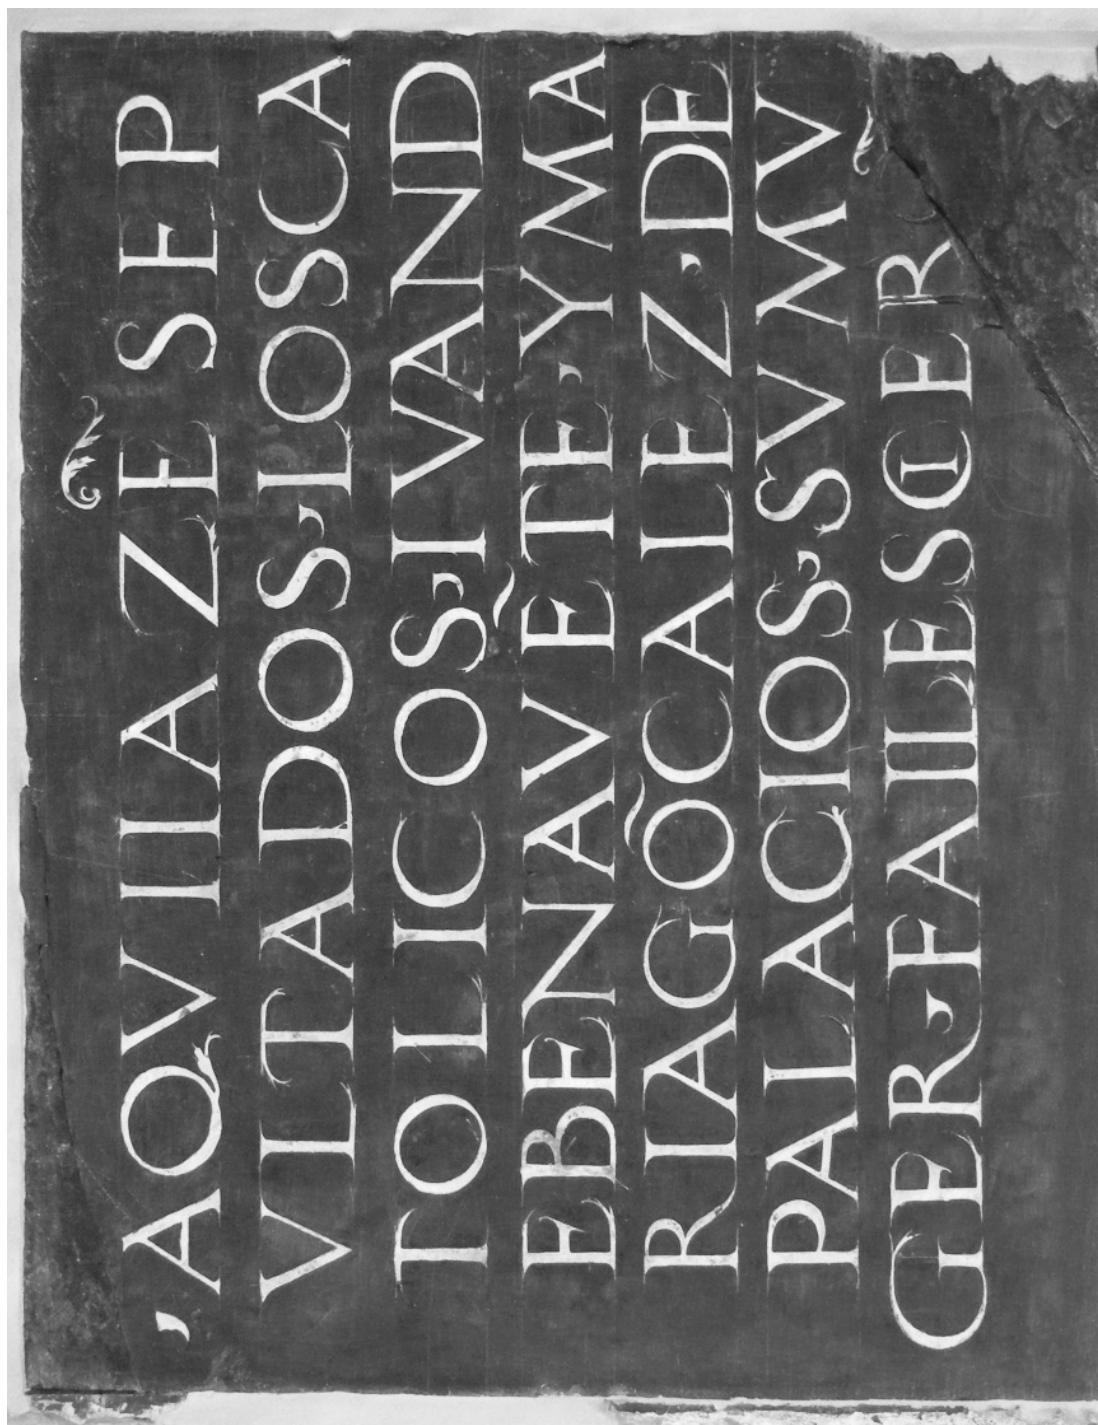 AQVI IAZẼ SEP
VLTADOS·LOS CA
TOLICOS·IVAN D
E BENAVẼTE·Y MA
RIA GÕCALEZ·DE
PALACIOS·SV MV
GER·FAILESCIERÕ